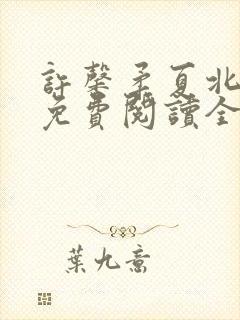 許馨矛夏北
免費閱讀全
葉九